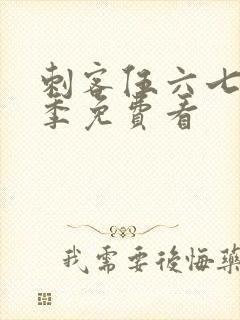 刺客伍六七
季免費看
我需要後悔藥